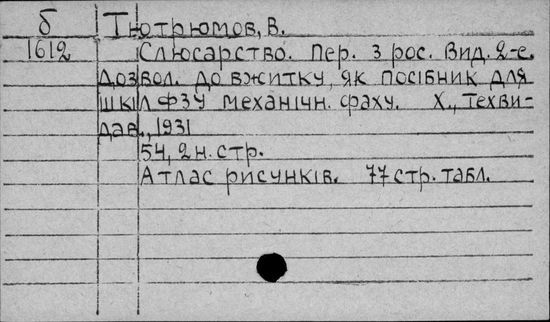 б Тютрюмов, В.
1612 Слюсарство. Пер. з рос. Вид. 2-е.
Дозвол. до вжитку, як посібник для
шкіл ФЗУ механічн. фаху. Х., Техви-
дав., 1931
54, 2 н. стр.
Атлас рисунків. 77 стр. табл.